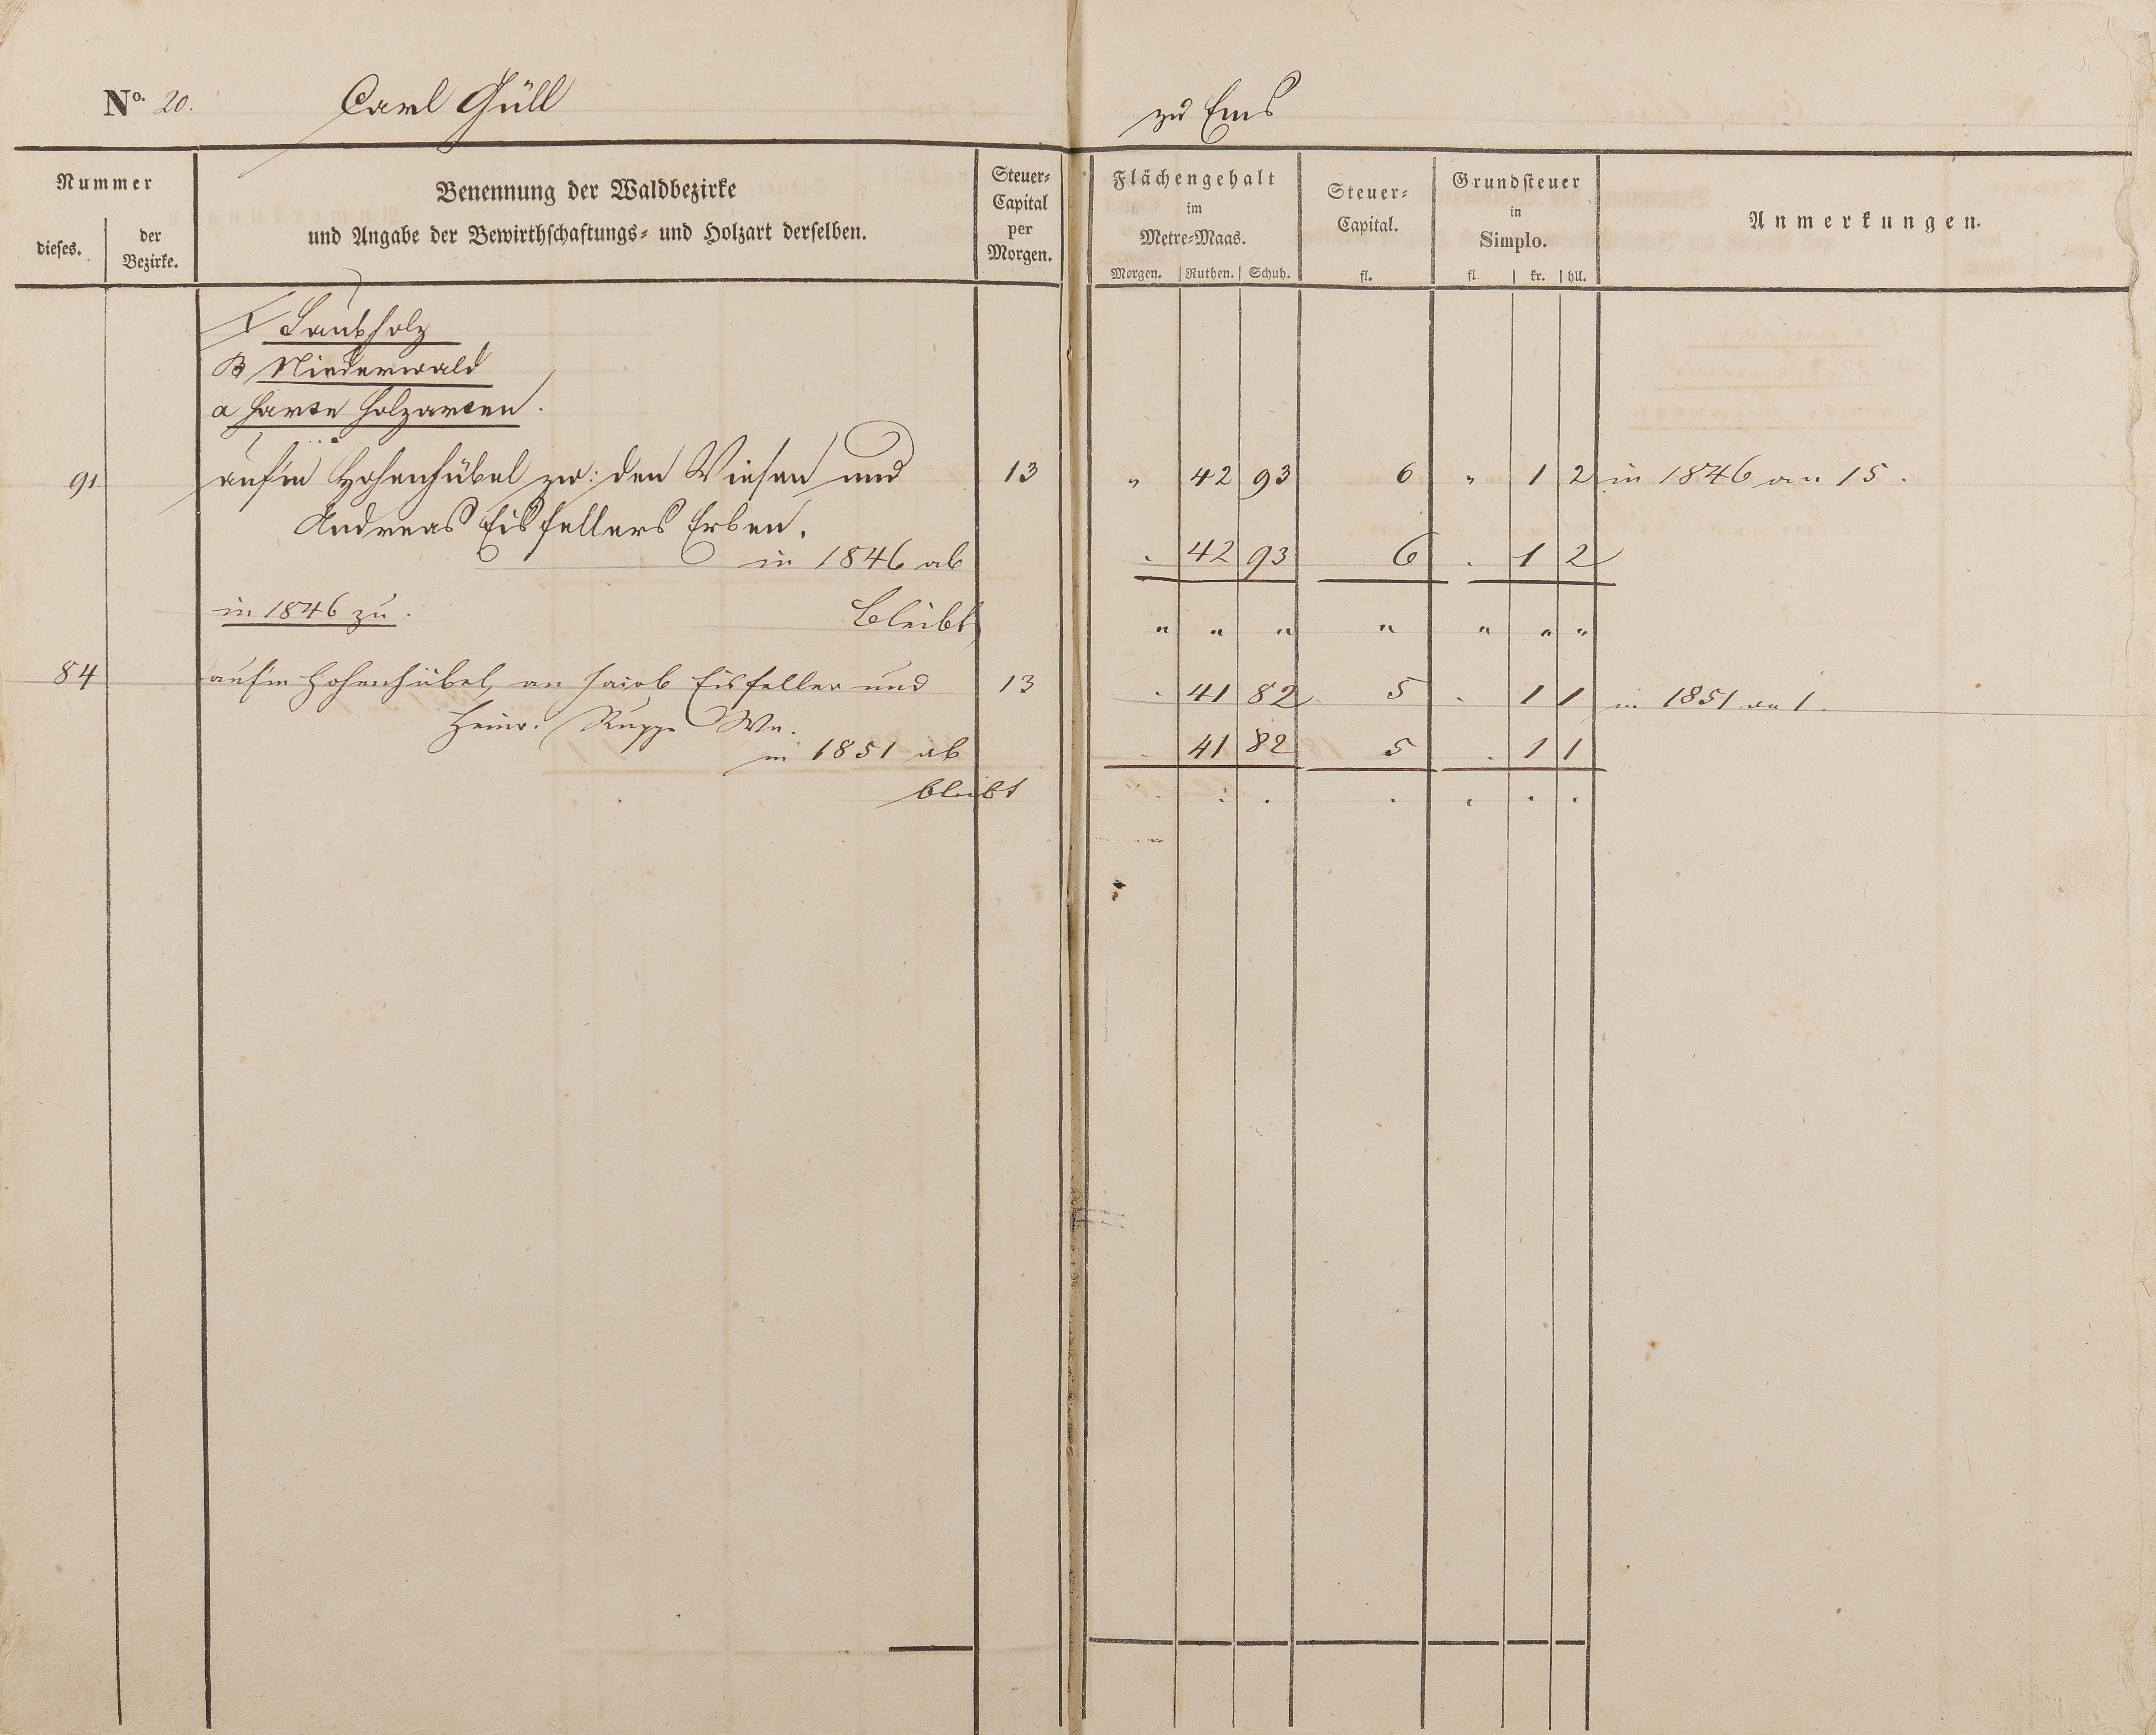 No. 20. Carl Güll zu Ems
Nummer
dieses.
der
Bezirke.
Benennung der Waldbezirke
und Angabe der Bewirthschaftungs- und Holzart derselben.
Steuer-
Capital
per
Morgen.
Flächengehalt
im
Metre-Maas.
Morgen. Ruthen. Schuh.
Steuer-
Capital.
fl.
Grundsteuer
in
Simplo.
fl. kr. hll.
Anmerkungen.
I Laubholz
B Niederwald
a harte Holzarten.
91 auf'm Hohenhübel zw: den Wiesen und 13 " 42 93 6 " 1 2 in 1846 an 15.
Andreas Eisfellers Erben.
in 1846 ab . 42 93 6 . 1 2
in 1846 zu. bleibt " " " " " " "
84 auf'm Hohenhübel, an Jacob Eisfeller und 13 . 41 82 5 . 1 1 in 1851 an 1.
Heinr. Rupp We.
in 1851 ab . 41 82 5 . 1 1
bleibt . . . . . . .